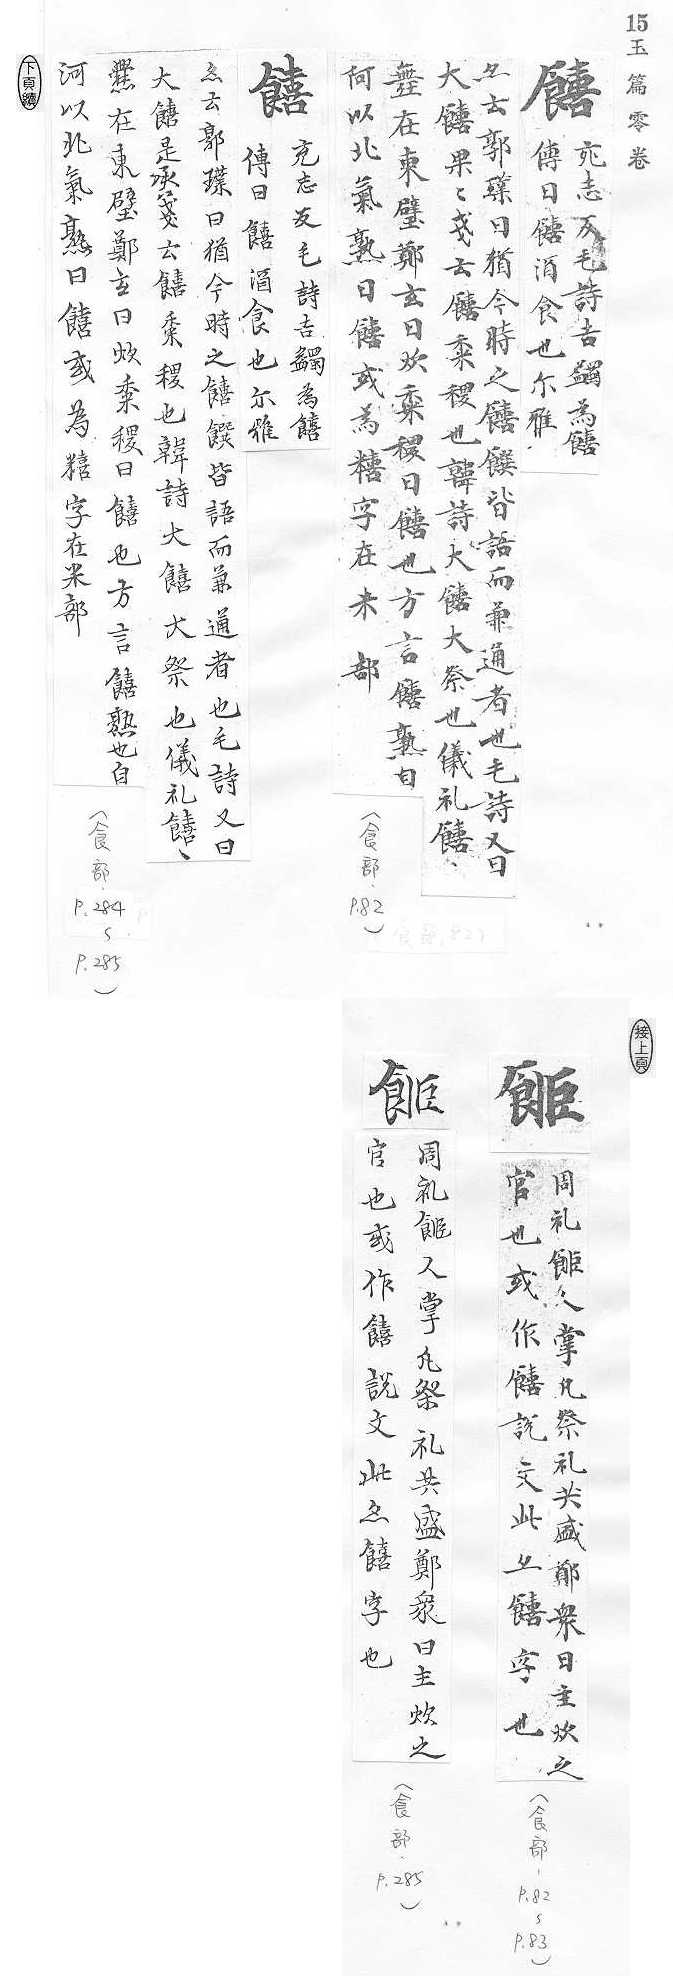 15
玉篇零卷
饎
充志反毛詩吉蠲為饎
傳曰饎酒食也尒雅
亦云郭璞曰猶今時之饎饌皆語而兼通者也毛詩又曰
大饎果〻戔云饎黍稷也韓詩大饎大祭也儀礼饎、
在東壁鄭玄曰炊黍稷曰饎也方言饎熟也自
何以北氣熟曰饎或為糦字在米部
(食部.P.82)
饎
充志反毛詩吉蠲為饎
傳曰饎酒食也尒雅
亦云郭璞曰猶今時之饎饌皆語而兼通者也毛詩又曰
大饎是承戔云饎黍稷也韓詩大饎大祭也儀礼饎、
爨在東壁鄭玄曰炊黍稷曰饎也方言饎熟也自
河以北氣熟曰饎或為糦字在米部
(食部.P.284~P.285)
下頁續
接上頁
䭒
周礼䭒人掌凡祭礼共盛鄭衆曰主炊之
官也或作饎說文此亦饎字也
(食部.P.82~P.83)
䭒
周礼䭒人掌凡祭礼共盛鄭衆曰主炊之
官也或作饎說文此亦饎字也
(食部.P.285)